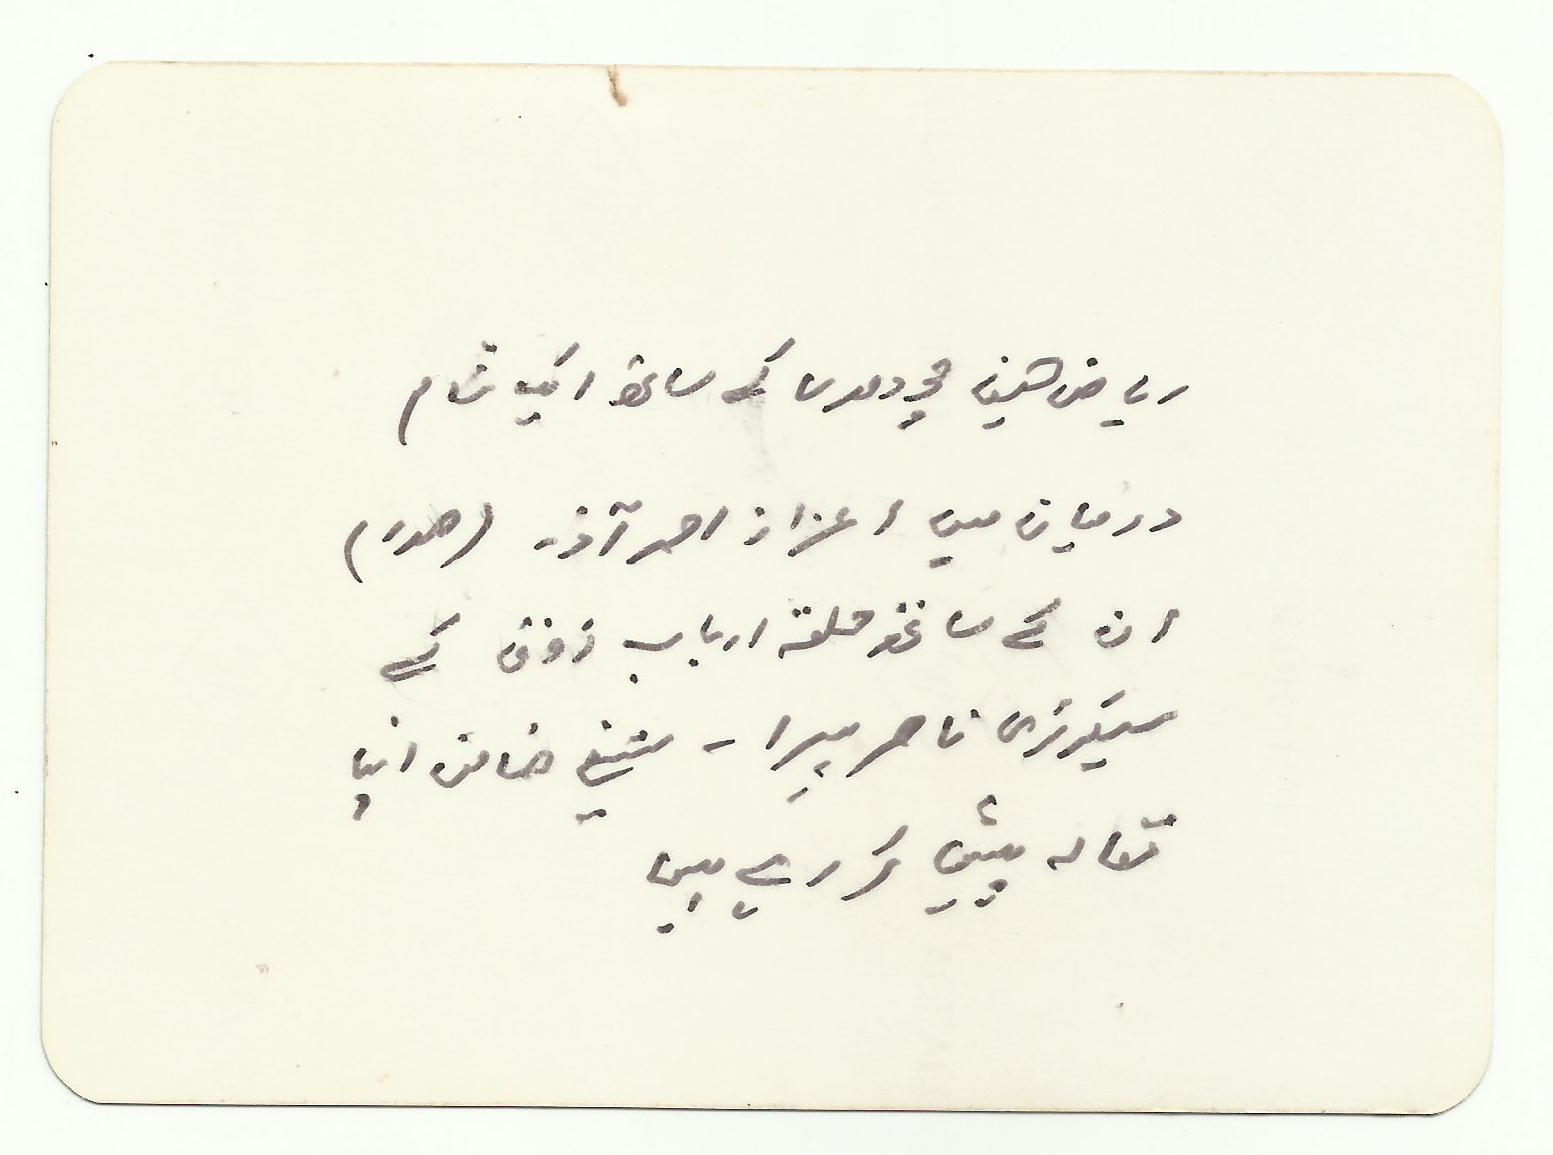 ریاض حسین چودھری کے ساتھ ایک شام
درمیان میں اعزاز احمد آذر (صدر)
ان کے ساتھ حلقہ ارباب ذوق کے
سیکرٹری ناصر - شیخ ضامن اپنا
مقالہ پیش کر رہے ہیں